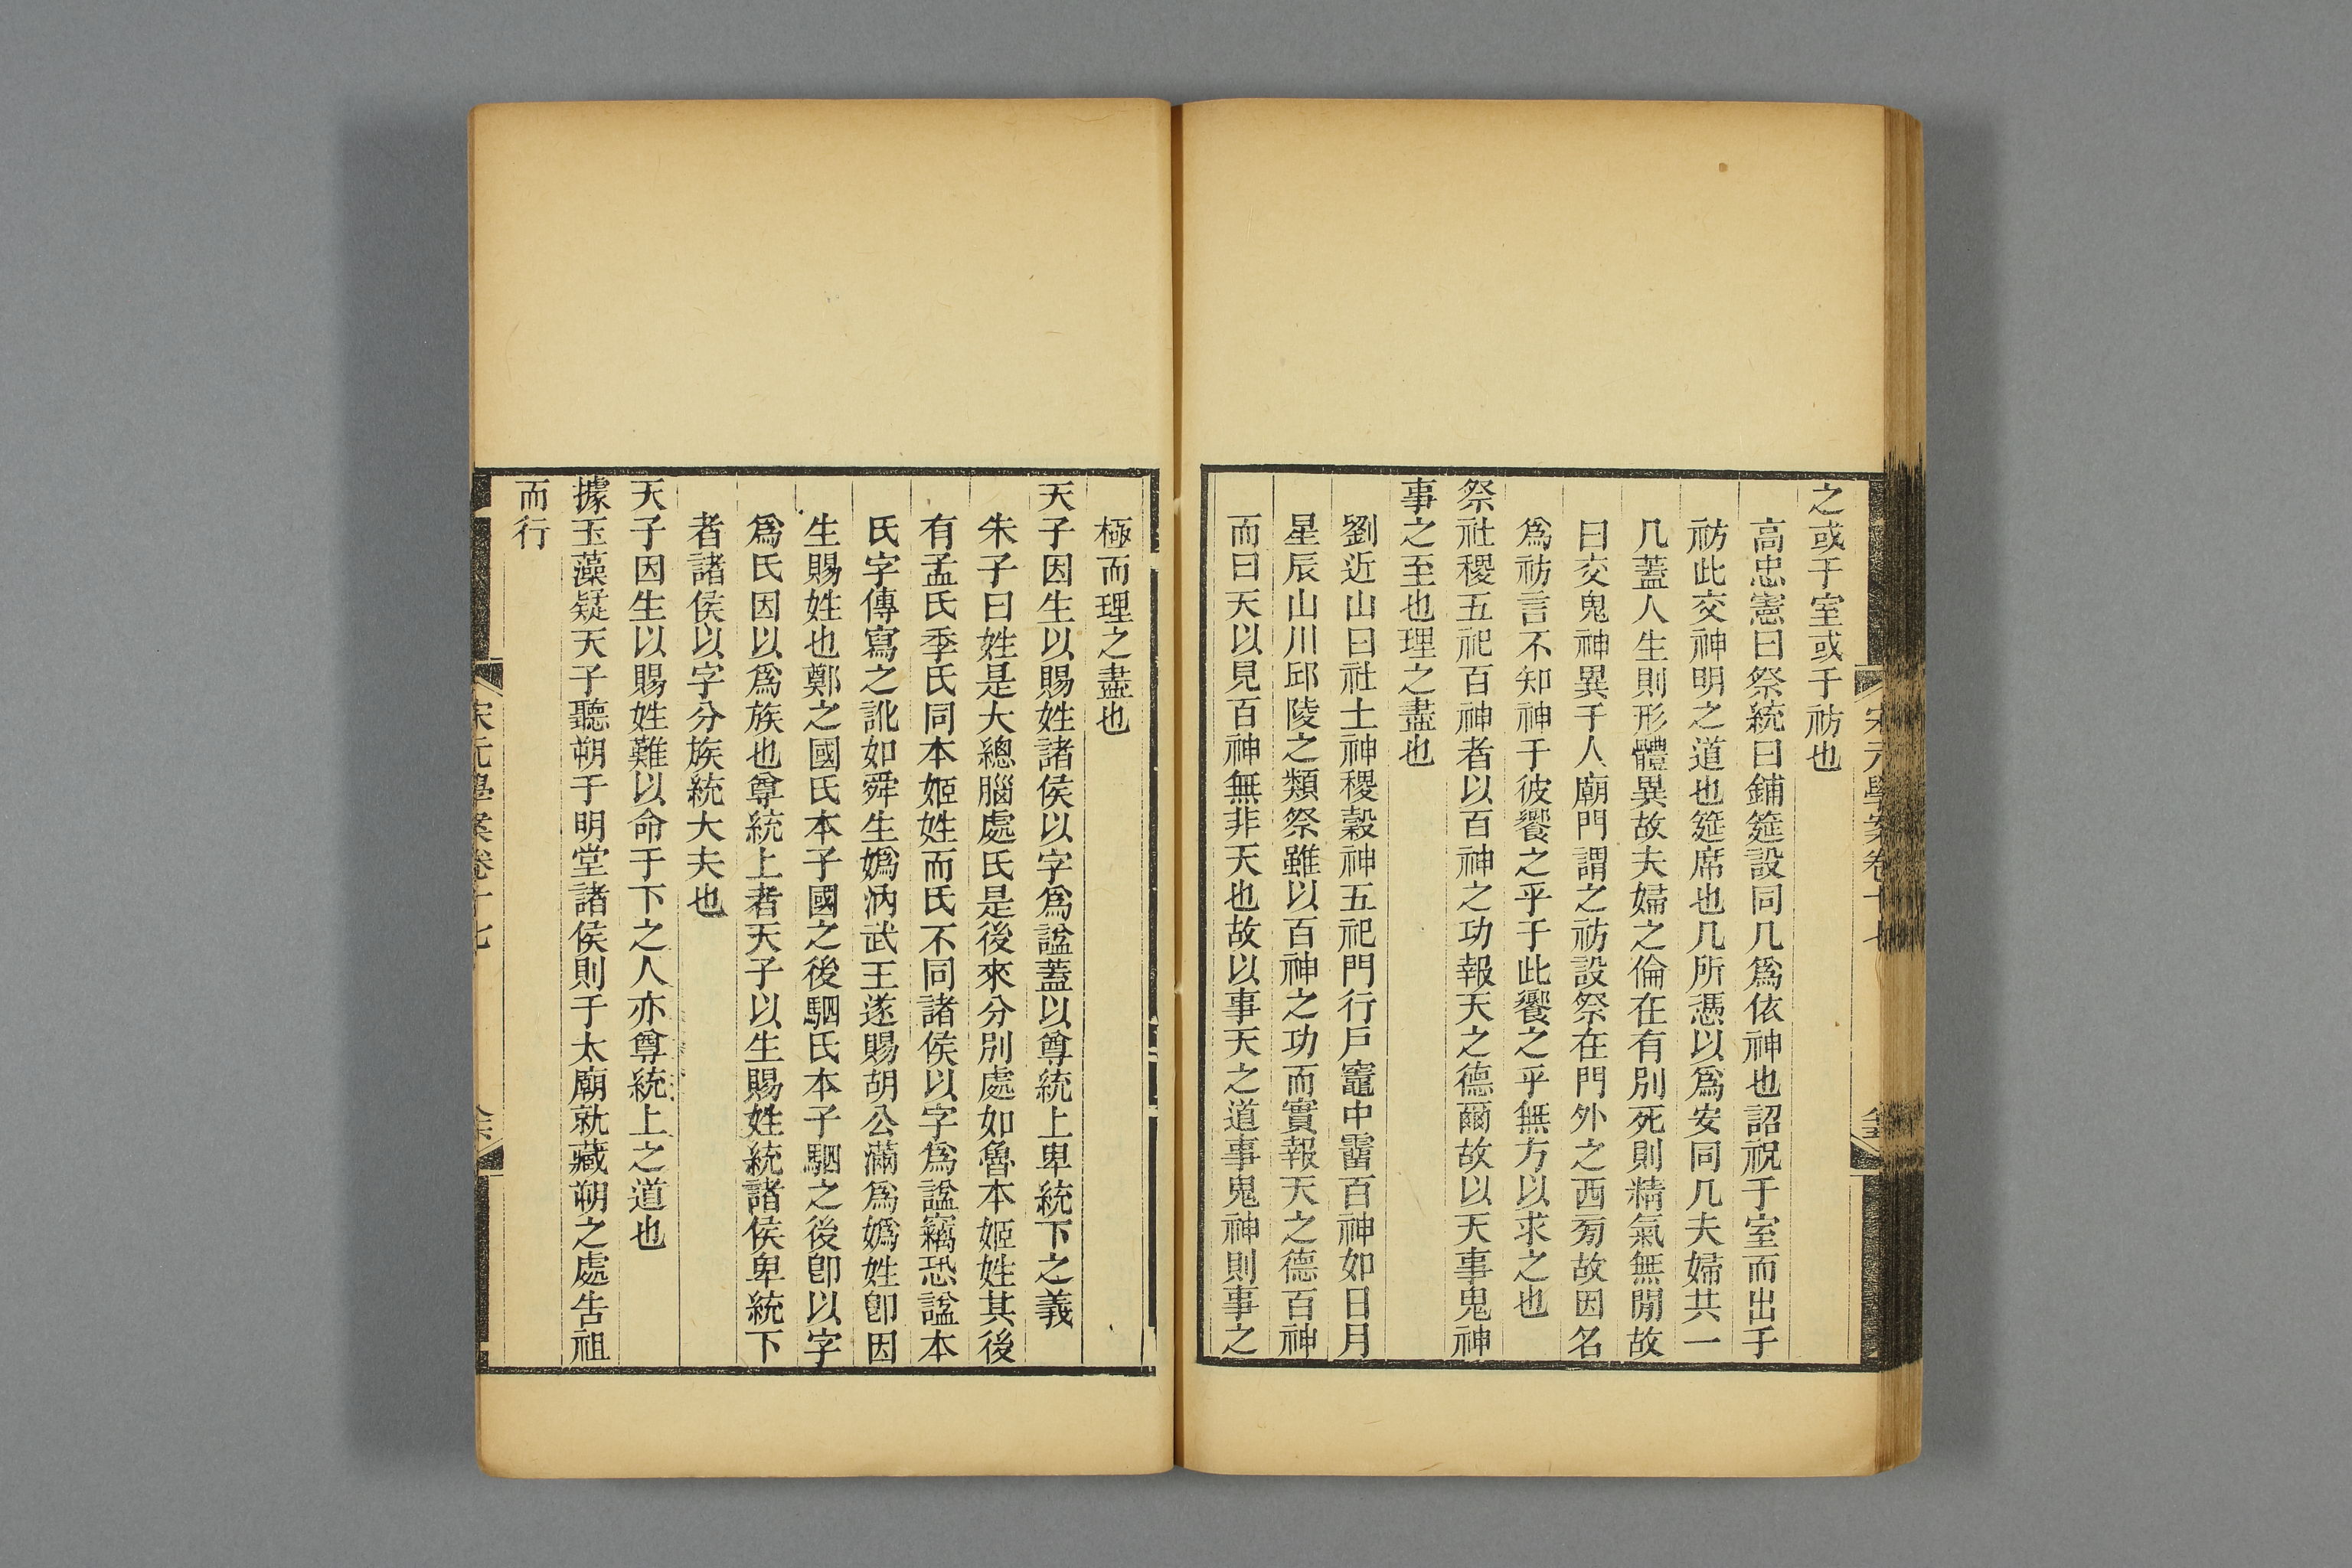 之或于室或于祊也
高忠憲曰祭統曰鋪筵設同几爲依神也詔祝于室而出于
祊此交神明之道也筵席也几所憑以爲安同几夫婦共一
几蓋人生則形體異故夫婦之倫在有別死則精氣無閒故
曰交鬼神異于人廟門謂之祊設祭在門外之西旁故因名
爲祊言不知神于彼饗之乎于此饗之乎無方以求之也
祭社稷五祀百神者以百神之功報天之德爾故以天事鬼神
事之至也理之盡也
劉近山曰社土神稷穀神五祀門行戸竈中霤百神如日月
星辰山川邱陵之類祭雖以百神之功而實報天之德百神
而曰天以見百神無非天也故以事天之道事鬼神則事之
極而理之盡也
天子因生以賜姓諸侯以字爲諡蓋以尊統上卑統下之義
朱子曰姓是大總腦處氏是後來分別處如魯本姬姓其後
有孟氏季氏同本姬姓而氏不同諸侯以字爲諡竊恐諡本
氏字傳寫之訛如舜生嬀汭武王遂賜胡公滿爲嬀姓卽因
生賜姓也鄭之國氏本子國之後駟氏本子駟之後卽以字
爲氏因以爲族也尊統上者天子以生賜姓統諸侯卑統下
者諸侯以字分族統大夫也
天子因生以賜姓難以命于下之人亦尊統上之道也
據玉藻疑天子聽朔于明堂諸侯則于太廟就藏朔之處告祖
而行
宋元學案卷十七